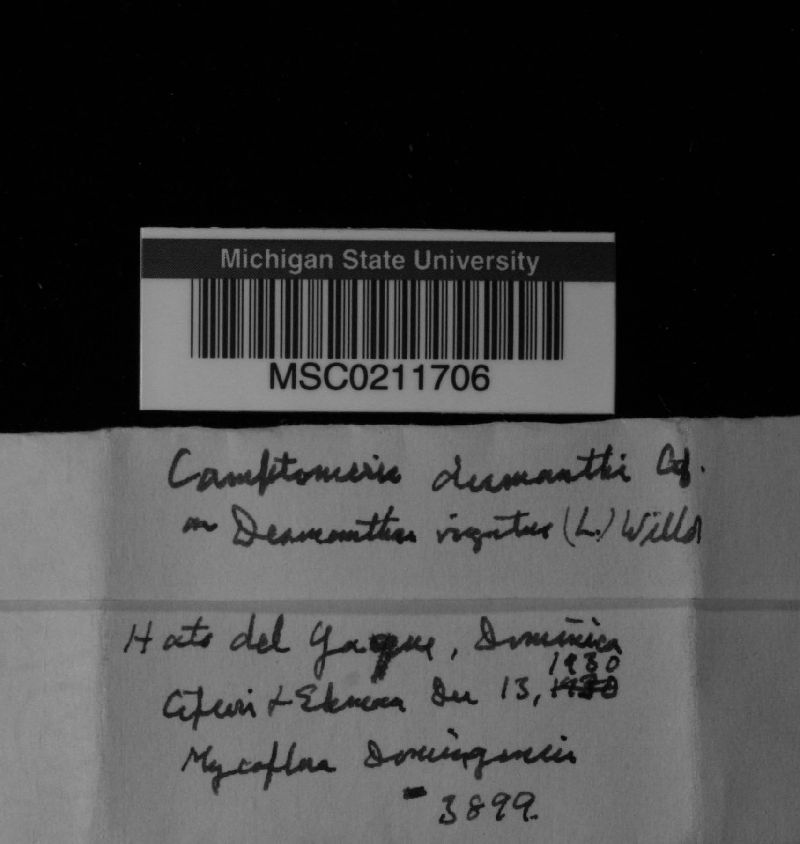 Michigan State University
MSC0211706
Camptomeris desmanthi Cif.
on Desmanthus virgatus (L.) Willd
Hato del Yaque, Dominica
1930
Ciferri & Ekman Dec 13,
Mycoflora Domingensis
- 3899.